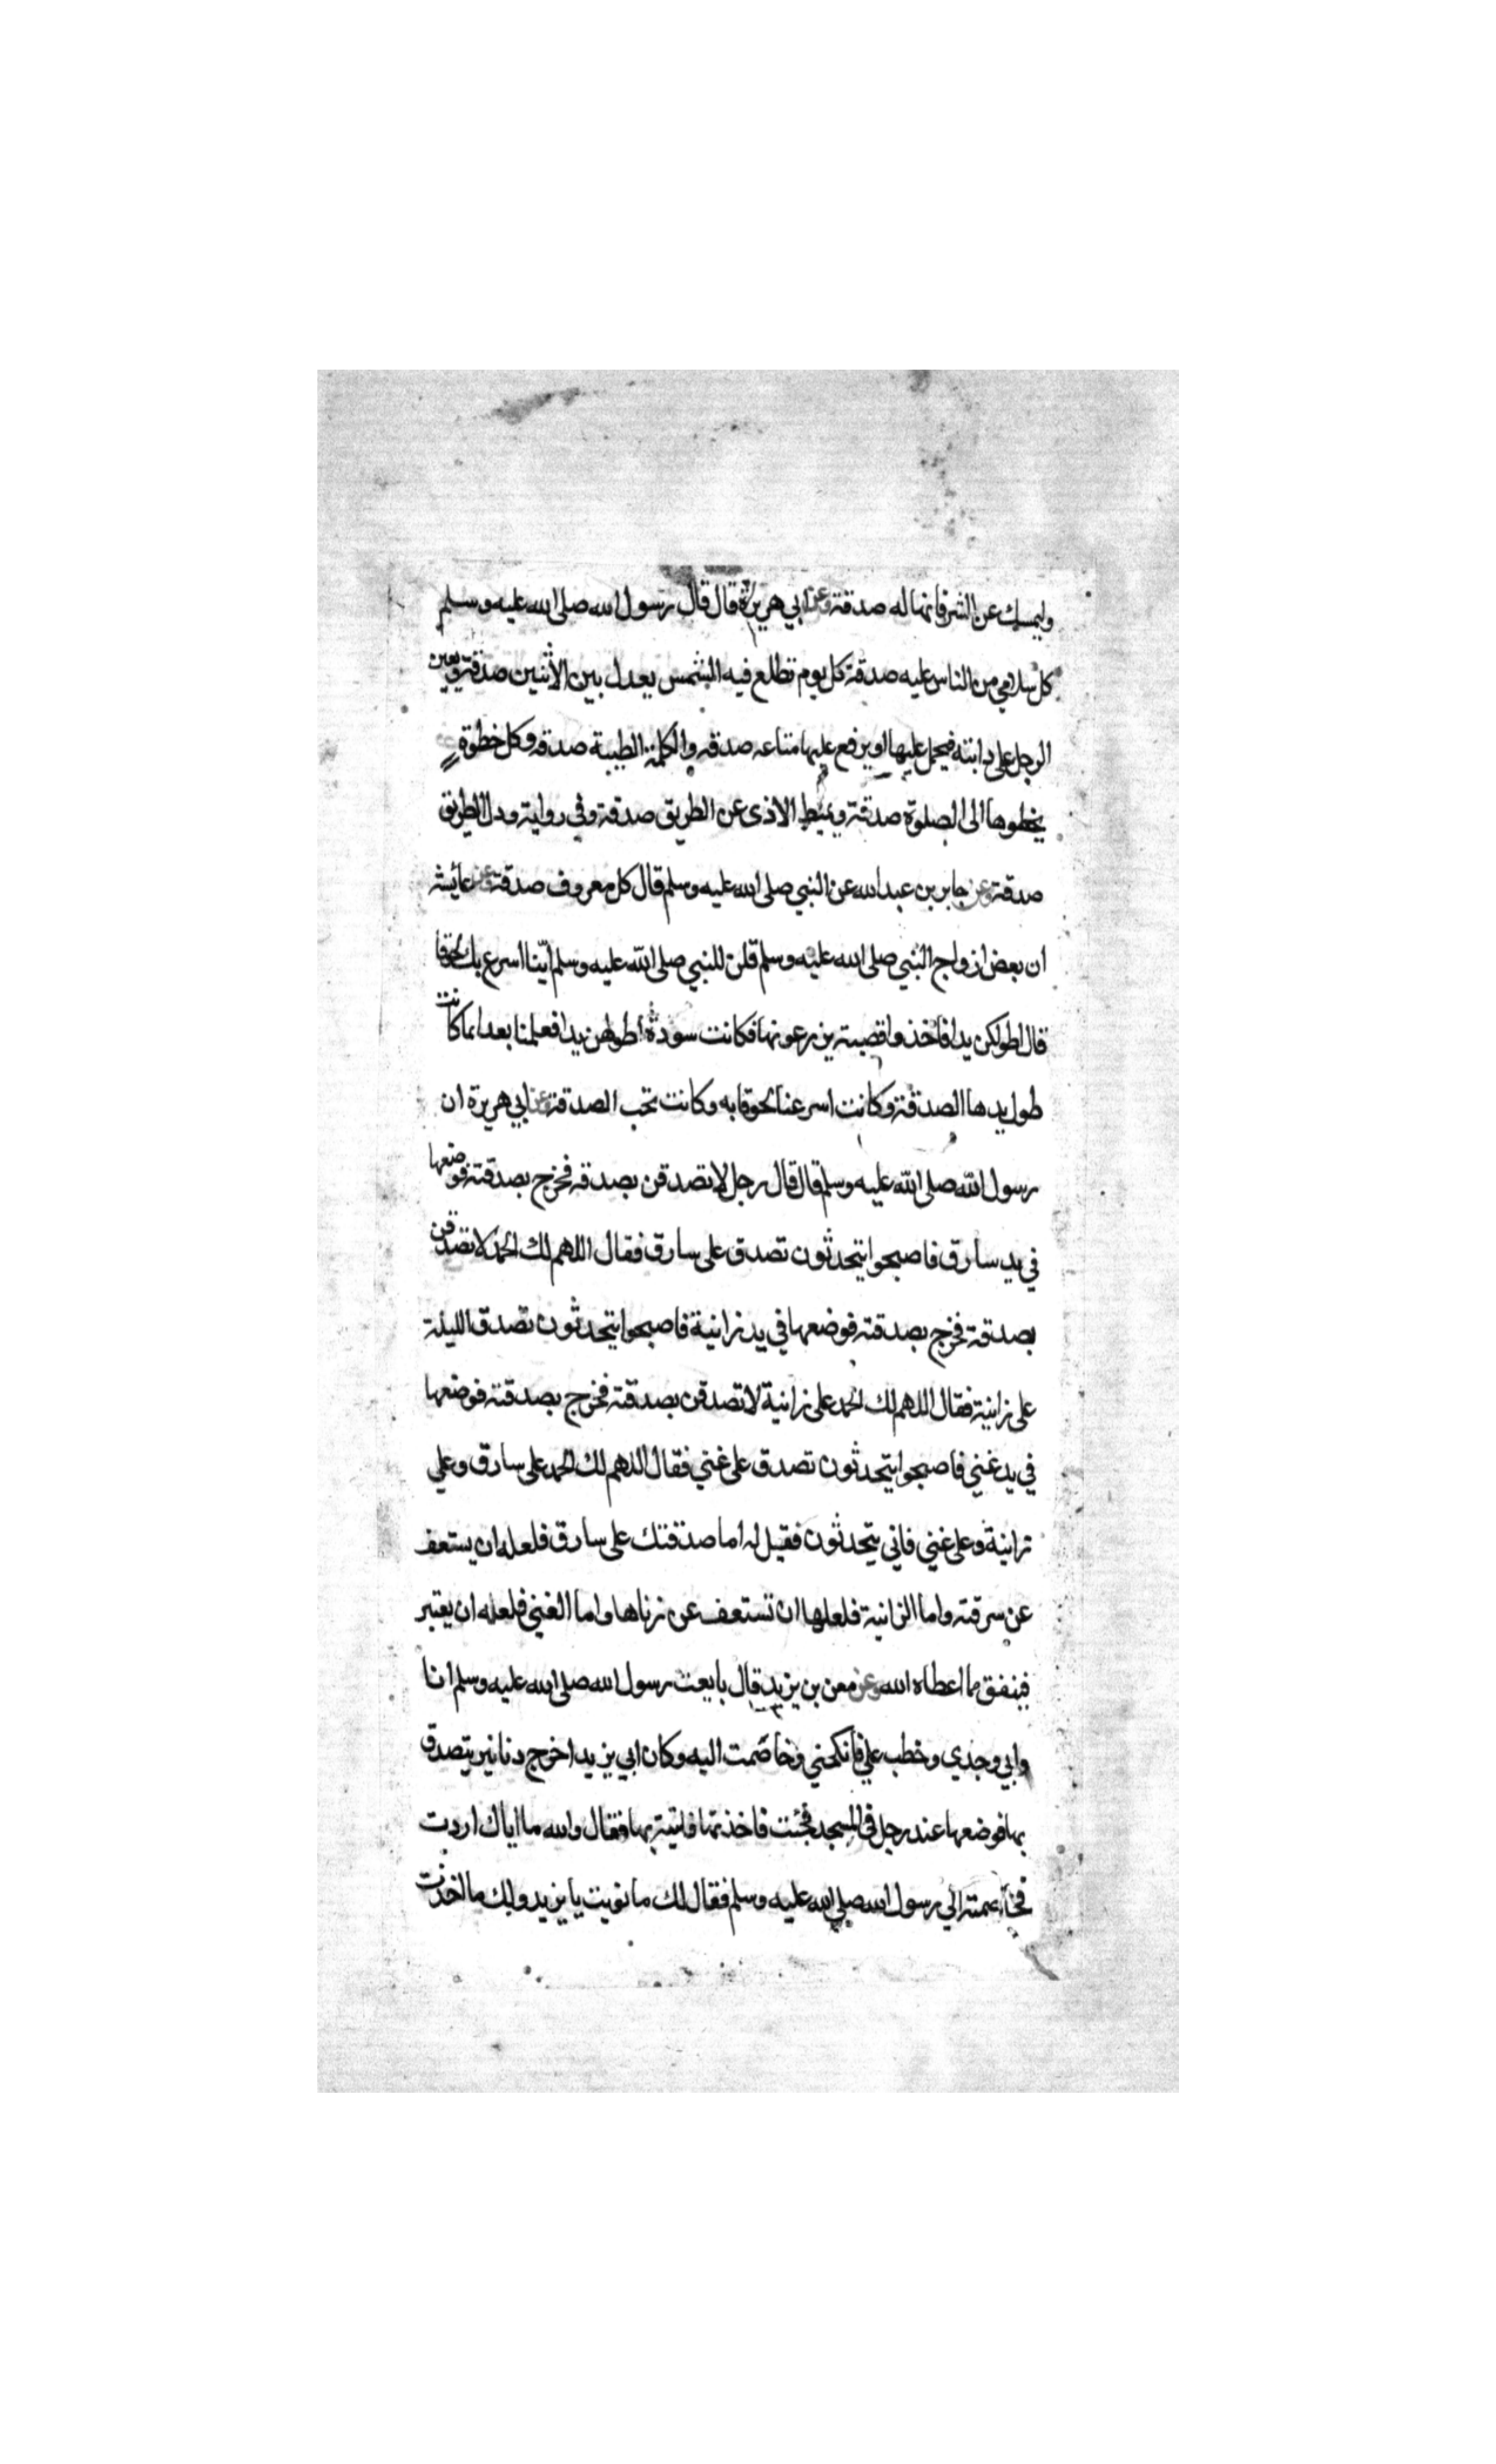 وليمسك عن الشر فانها له صدقة وعن ابي هريرة قال قال رسول الله صلى الله عليه وسلم
كل سلامي من الناس عليه صدقة كل يوم تطلع فيه الشمس يعدل بين الاثنين صدقة ويعين
الرجل على دابته فيحمل عليها او يرفع عليها متاعه صدقه والكلمة الطيبة صدقه وكل خطوة
يخطوها الى الصلوة صدقة ويميط الاذى عن الطريق صدقة وفي رواية ودل الطريق
صدقة وعن جابر بن عبد الله عن النبي صلى الله عليه وسلم قال كل معروف صدقة وعن عائشة
ان بعض ازواج النبي صلى الله عليه وسلم قلن للنبي صلى الله عليه وسلم ايّنا اسرع بك لحوقا
قال اطولكن يدا فاخذوا قصبة يزرعونها فكانت سودة اطولهن يدا فعلمنا بعد انما كانت
طول يدها الصدقة وكانت اسرعنا لحوقا به وكانت تحب الصدقة وعن ابي هريرة ان
رسول الله صلى الله عليه وسلم قال قال رجل لاتصدقن بصدقه فخرج بصدقته فوضعها
في يد سارق فاصبحوا يتحدثون تصدق على سارق فقال اللهم لك الحمد لاتصدقن
بصدقة فخرج بصدقته فوضعها في يد زانية فاصبحوا يتحدثون تصدق الليلة
على زانية فقال اللهم لك الحمد على زانية لاتصدقن بصدقته فخرج بصدقته فوضعها
في يد غني فاصبحوا يتحدثون تصدق على غني فقال اللهم لك الحمد على سارق وعلي
زانية وعلى غني فاني يتحدثون فقيل له اما صدقتك على سارق فلعله ان يستعف
عن سرقته واما الزانية فلعلها ان تستعف عن زناها واما الغني فلعله ان يعتبر
فينفق مما اعطاه الله وعن معن بن يزيد قال بايعت رسول الله صلى الله عليه وسلم انا
وابي وجدي وخطب علي فانكحني وخاصمت اليه وكان ابي يزيد اخرج دنانير يتصدق
بها فوضعها عند رجل في المسجد فجئت فاخذتها فاتيته بها فقال والله ما اياك اردت
فخاصمته الي رسول الله صلي الله عليه وسلم فقال لك ما نويت يا يزيد ولك ما اخذت